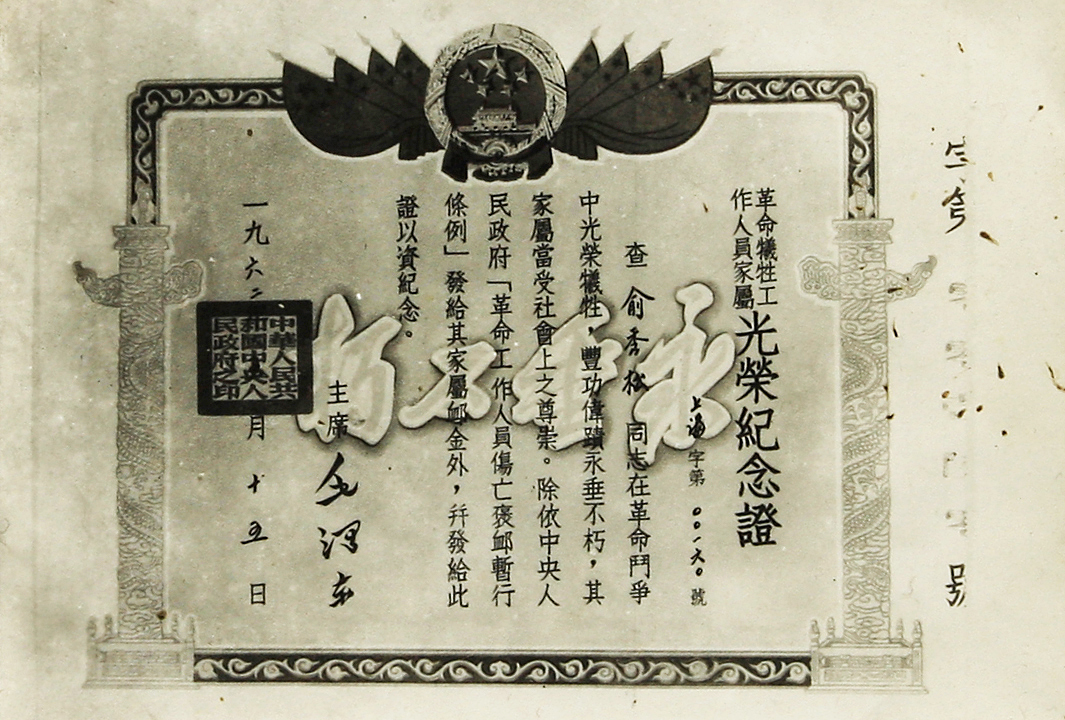 革命犧牲工
作人員家屬
光榮紀念證
上海字第〇〇一六〇號
查俞秀松同志在革命鬥爭
中光榮犧牲，豐功偉蹟永垂不朽，其
家屬當受社會上之尊崇。除依中央人
民政府「革命工作人員傷亡褒卹暫行
條例」發給其家屬卹金外，幷發給此
證以資紀念。
主席毛澤東
一九六二 月十五日
中華人民共
和國中央人
民政府之印
永垂不朽
號